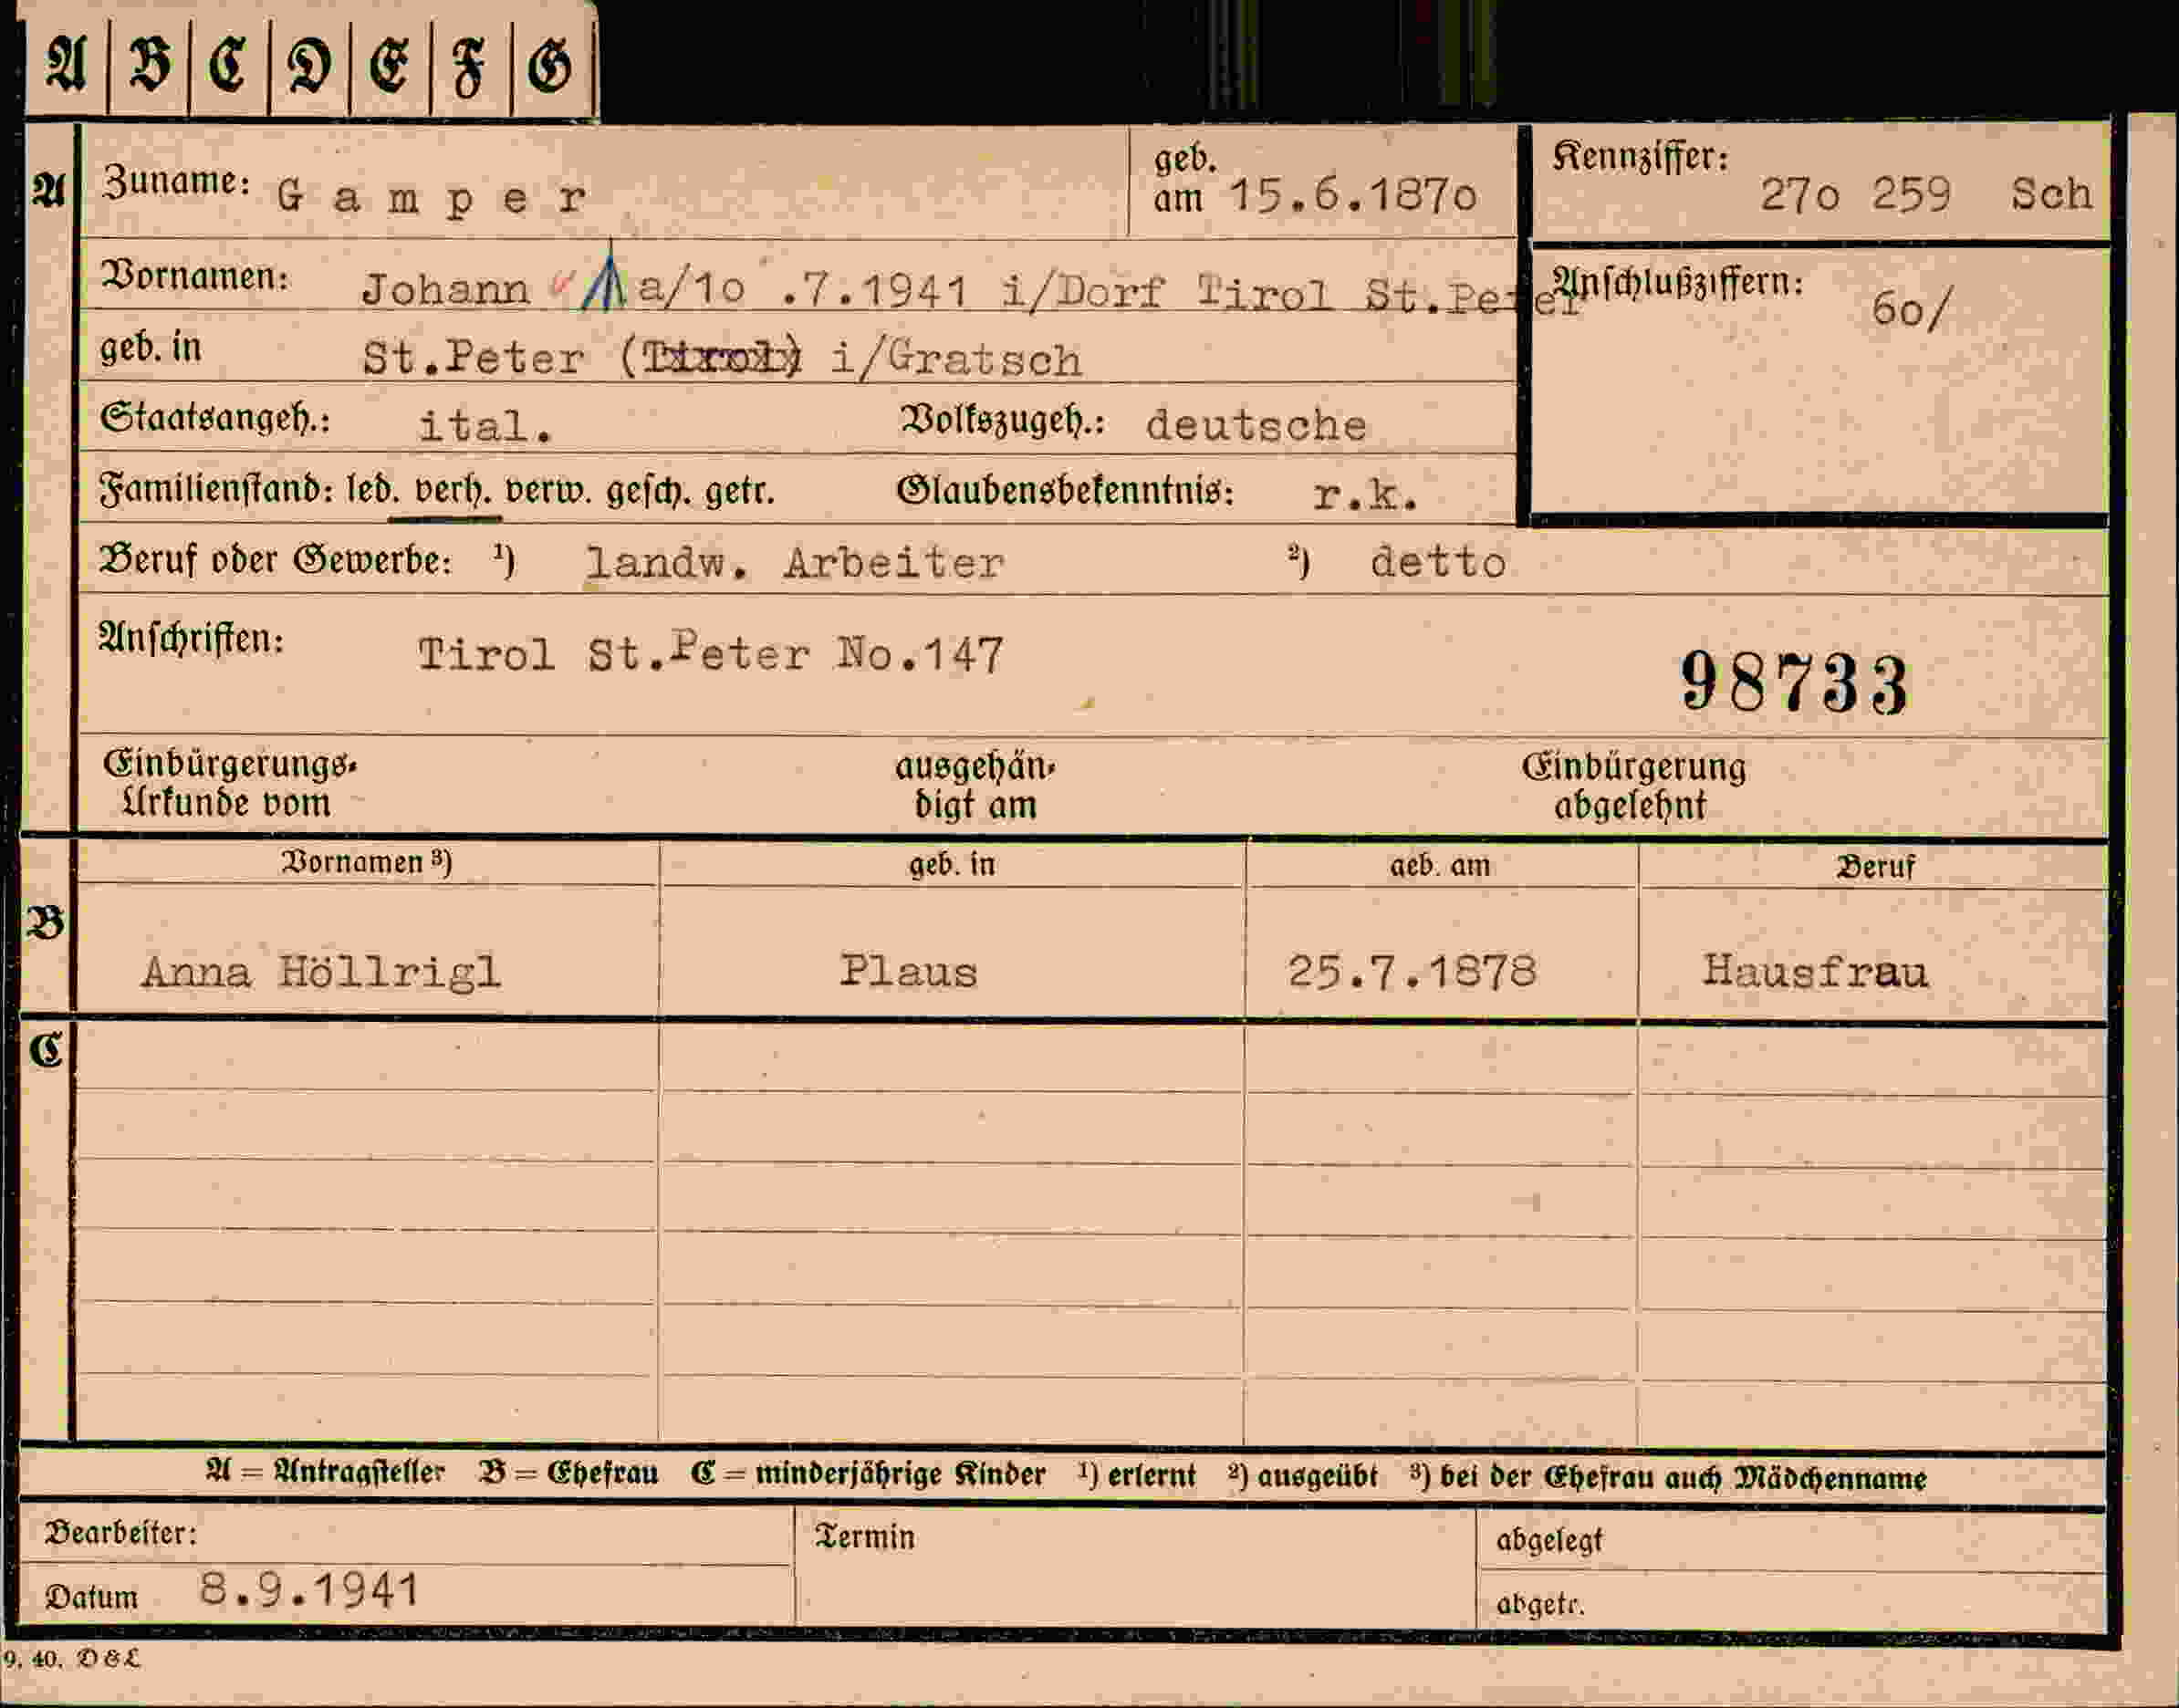 A B C D E F G
A Zuname: Gamper geb. am 15.6.187o Kennziffer: 27o 259 Sch
Vornamen: Johann a/1o .7.1941 i/Dorf Tirol St.Peter Anschlußziffern: 6o/
geb. in St.Peter (Tirol) i/Gratsch
Staatsangeh.: ital. Volkszugeh.: deutsche
Familienstand: led. verh. verw. gesch. getr. Glaubensbekenntnis: r.k.
Beruf oder Gewerbe: ¹) landw. Arbeiter ²) detto
Anschriften: Tirol St.Peter No.147
98733
Einbürgerungs-Urkunde vom ausgehändigt am Einbürgerung abgelehnt
Vornamen ³) geb. in geb. am Beruf
B Anna Höllrigl Plaus 25.7.1878 Hausfrau
C
A = Antragsteller B = Ehefrau C = minderjährige Kinder ¹) erlernt ²) ausgeübt ³) bei der Ehefrau auch Mädchenname
Bearbeiter: Termin abgelegt
Datum 8.9.1941 abgetr.
9. 40. D&L